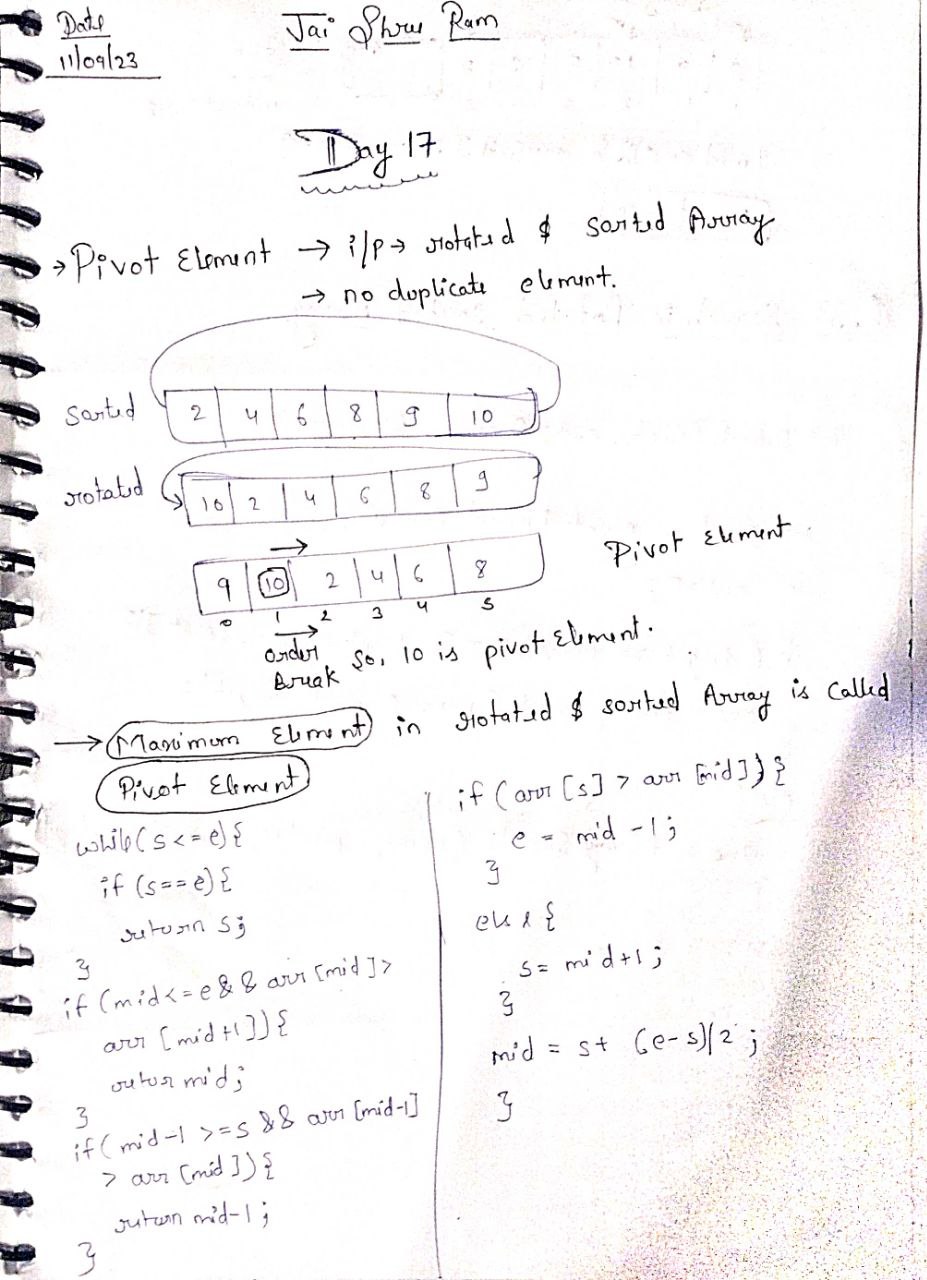 Date
11/09/23
Jai Shree Ram
Day 17
→ Pivot Element → i/p → rotated & sorted Array
→ no duplicate element.
sorted 2 4 6 8 9 10
rotated 10 2 4 6 8 9
9 10 2 4 6 8 Pivot Element.
0 1 2 3 4 5
order
Break So, 10 is pivot Element.
→ Maximum Element in rotated & sorted Array is called
Pivot Element
while(s<=e){
if (s==e){
return s;
}
if (mid<=e && arr[mid]>
arr [mid+1]){
retur mid;
}
if( mid-1 >=s && arr [mid-1]
> arr [mid]){
return mid-1;
}
if (arr [s] > arr [mid]){
e = mid -1;
}
else {
s= mid+1;
}
mid = s+ (e-s)/2;
}